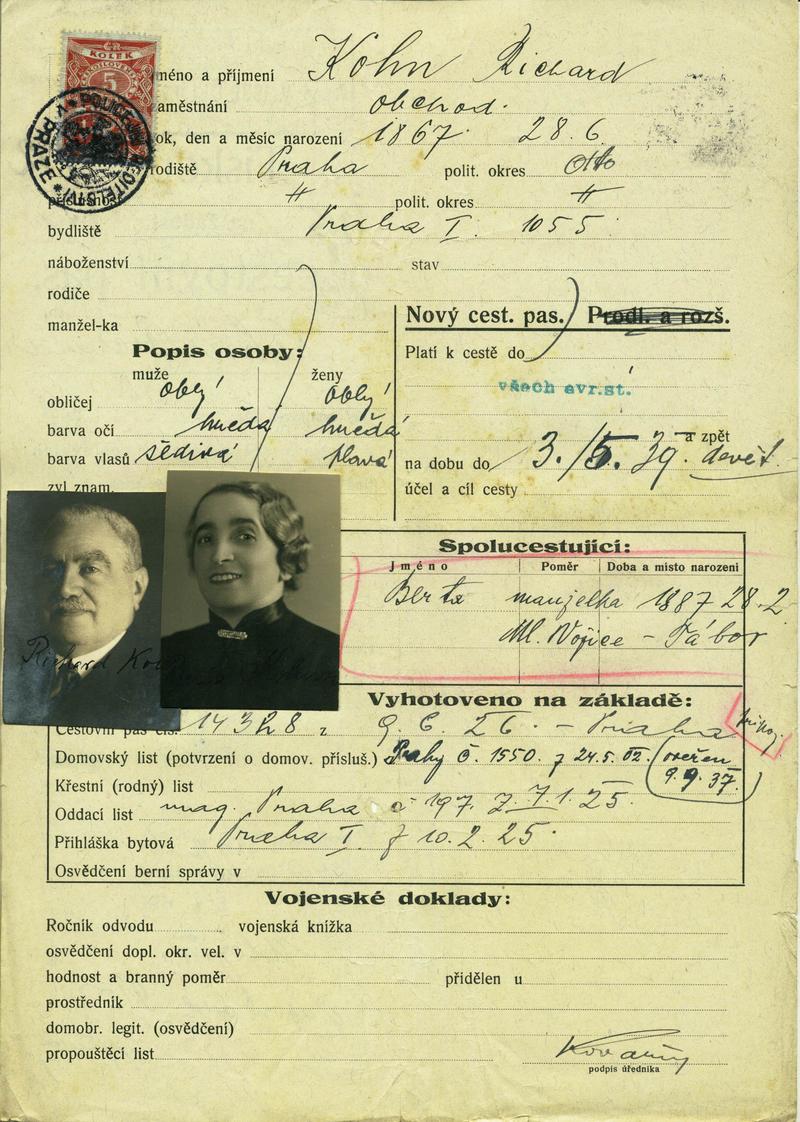 ČR
KOLEK
5
POLICEJNÍ ŘEDITELSTVÍ V PRAZE
méno a příjmení Kohn Richard
aměstnání obchod.
ok, den a měsíc narození 1867. 28.6
rodiště Praha polit. okres
příslušnost " polit. okres "
bydliště Praha I. 1055
náboženství stav
rodiče
manžel-ka
Nový cest. pas. Prodl. a rozš.
Popis osoby:
Platí k cestě do
muže ženy
všech evr.st.
obličej oblý oblý
barva očí hnědá hnědá
barva vlasů šedivá plavá
a zpět
na dobu do 3./5. 39. devět
zvl znam.
účel a cíl cesty
Spolucestující:
Jméno Poměr Doba a místo narození
Berta manželka 1887 28.2
Ml. Vožice - Tábor
Richard Kohn
Vyhotoveno na základě:
Cestovní pas čís. 14328 z - Praha
Domovský list (potvrzení o domov. přísluš.) Prahy č. 1550. z 24.5. 02. (ověřen
9.9.37.)
Křestní (rodný) list
Oddací list mag. Praha č 197. z 7.1.25.
Přihláška bytová Praha I z 10.2.25.
Osvědčení berní správy v
Vojenské doklady:
Ročník odvodu vojenská knížka
osvědčení dopl. okr. vel. v
hodnost a branný poměr přidělen u
prostředník
domobr. legit. (osvědčení)
propouštěcí list
podpis úředníka